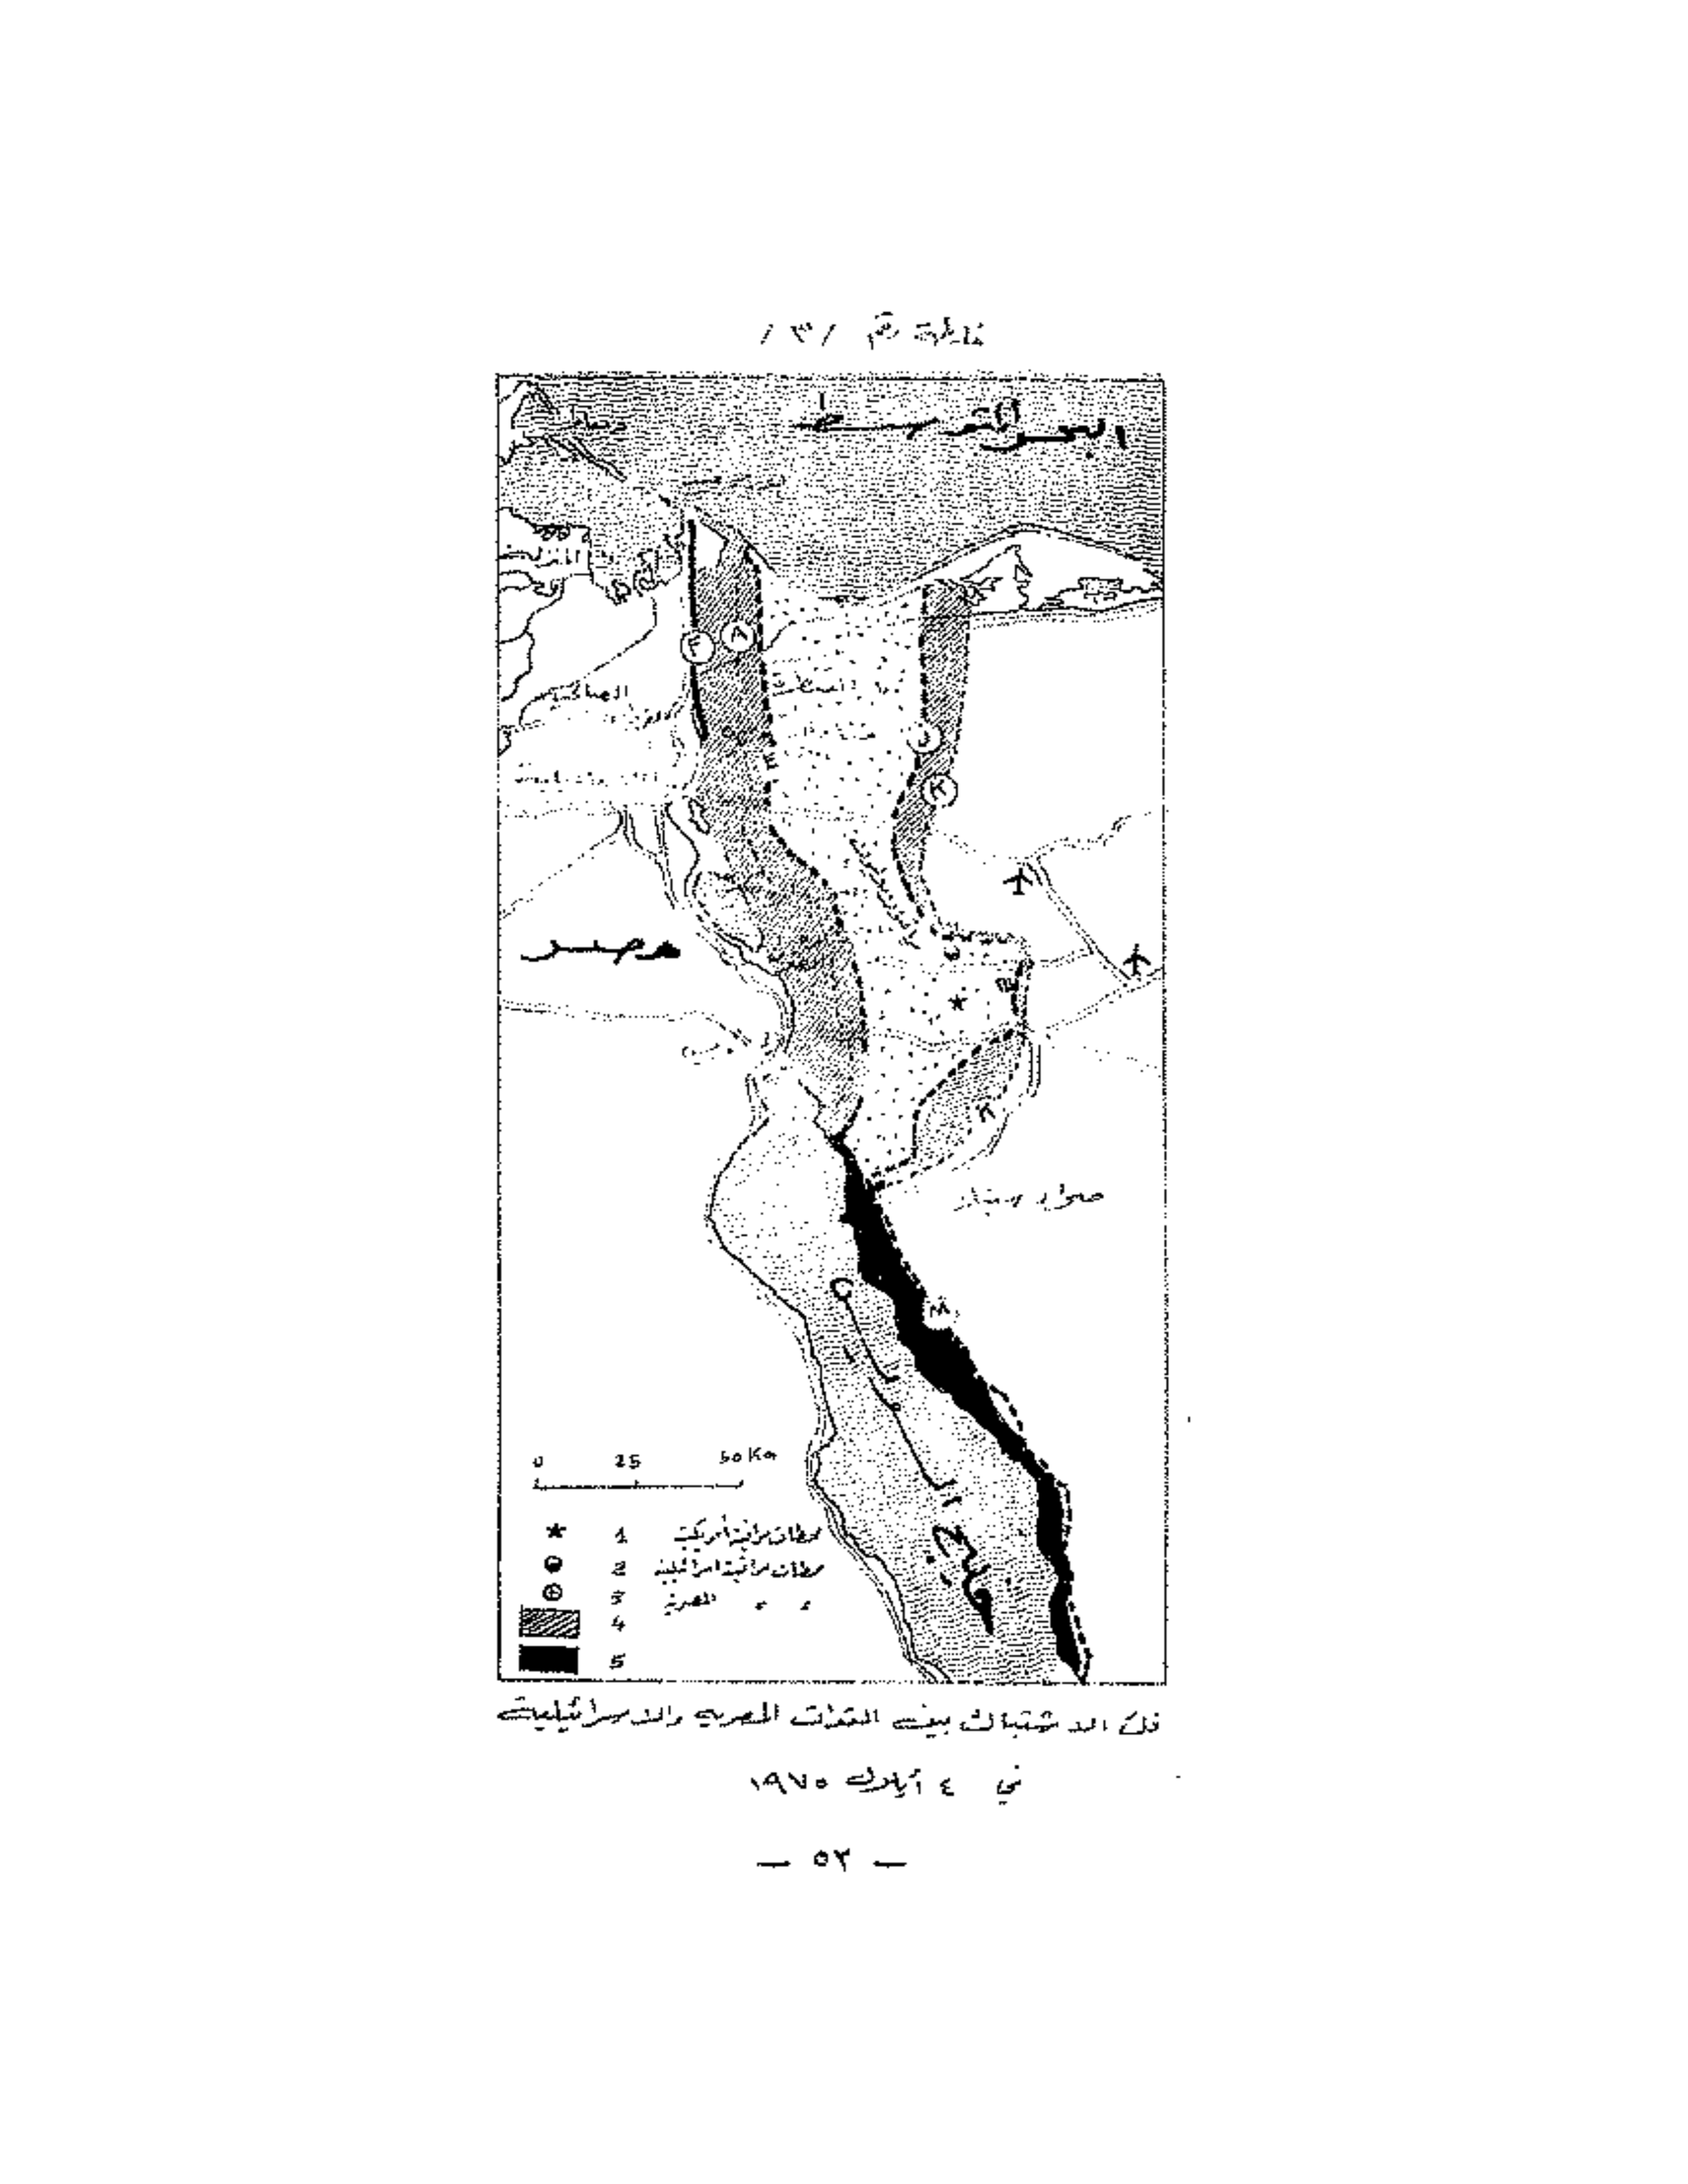 خارطة رقم ١٣١
البحر المتوسط
دمياط
المنزلة
F
A
E
J
K
مصر
K
صحراء سيناء
M
خليج السويس
0 25 50 Km
1 محطات مراقبة أمريكية
2 محطات مراقبة اسرائيلية
3 " " المصرية
4
5
فك الاشتباك بين القوات المصرية والاسرائيلية
في ٤ أيلول ١٩٧٥
— ٥٢ —